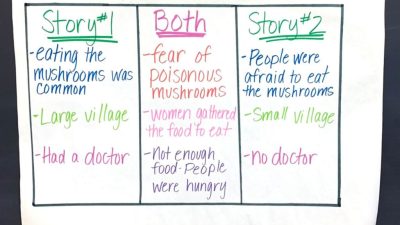 Story #1
-eating the
mushrooms was
common
-Large village
-Had a doctor
Both
-fear of
poisonous
mushrooms
-women gathered
the food to eat
-Not enough
food-People
were hungry
Story #2
-People were
afraid to eat
the mushrooms
-Small village
-no doctor